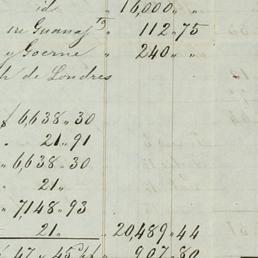 ide " 16,000 " "
ire Guanajto " 112 " 75
y Goerne " 240 " "
h de Londres
$ 6,638 " 30
" 21 " 91
" 6,638 " 30
" 21 "
" 7,148 " 93
" 21 " " 20,489 " 44
47 " 45 907 " 80